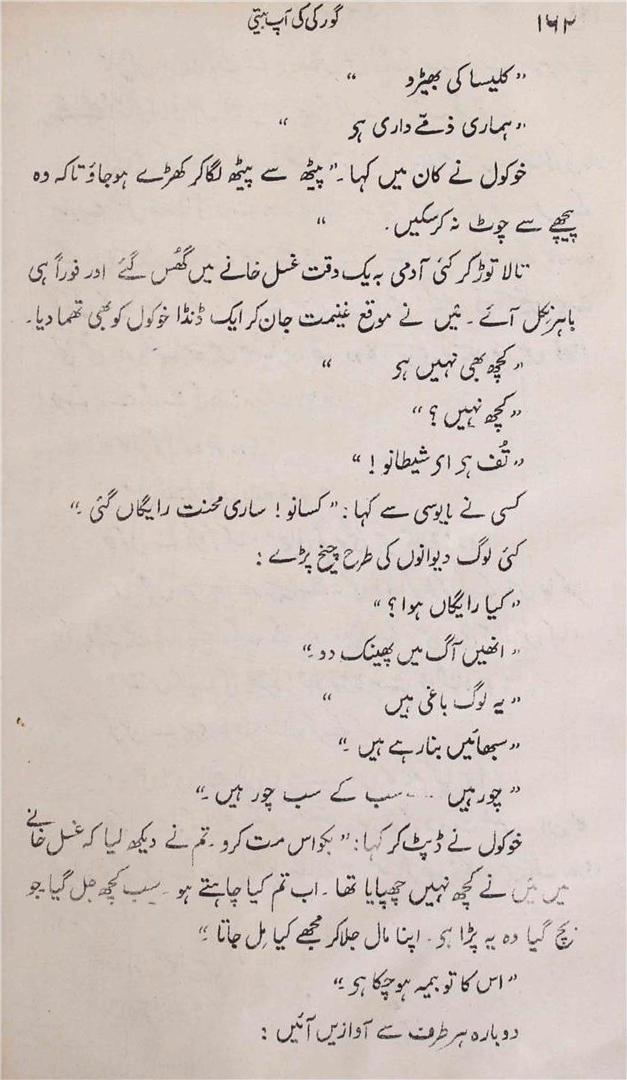 ۱۶۲ گورکی کی آپ بیتی
"کلیسا کی بھیڑو"
"ہماری ذمّے داری ہو"
خوکول نے کان میں کہا۔ "پیٹھ سے پیٹھ لگا کر کھڑے ہو جاؤ تاکہ وہ
پیچھے سے چوٹ نہ کر سکیں۔"
تالا توڑ کر کئی آدمی بہ یک وقت غسل خانے میں گھُس گئے اور فوراً ہی
باہر نکل آئے۔ میں نے موقع غنیمت جان کر ایک ڈنڈا خوکول کو بھی تھما دیا۔
"کچھ بھی نہیں ہو"
"کچھ نہیں؟"
"تُف ہو او شیطانو!"
کسی نے مایوسی سے کہا: "کسانو! ساری محنت رایگاں گئی۔"
کئی لوگ دیوانوں کی طرح چیخ پڑے:
"کیا رایگاں ہوا؟"
"انھیں آگ میں پھینک دو۔"
"یہ لوگ باغی ہیں"
"سبھائیں بنا رہے ہیں۔"
"چور ہیں ۔۔۔۔ سب کے سب چور ہیں۔"
خوکول نے ڈپٹ کر کہا: "بکواس مت کرو۔ تم نے دیکھ لیا کہ غسل خانے
میں میں نے کچھ نہیں چھپایا تھا۔ اب تم کیا چاہتے ہو۔ سب کچھ جل گیا جو
بچ گیا وہ یہ پڑا ہو۔ اپنا مال جلا کر مجھے کیا مِل جاتا۔"
"اس کا تو بیمہ ہو چکا ہو۔"
دوبارہ ہر طرف سے آوازیں آئیں: